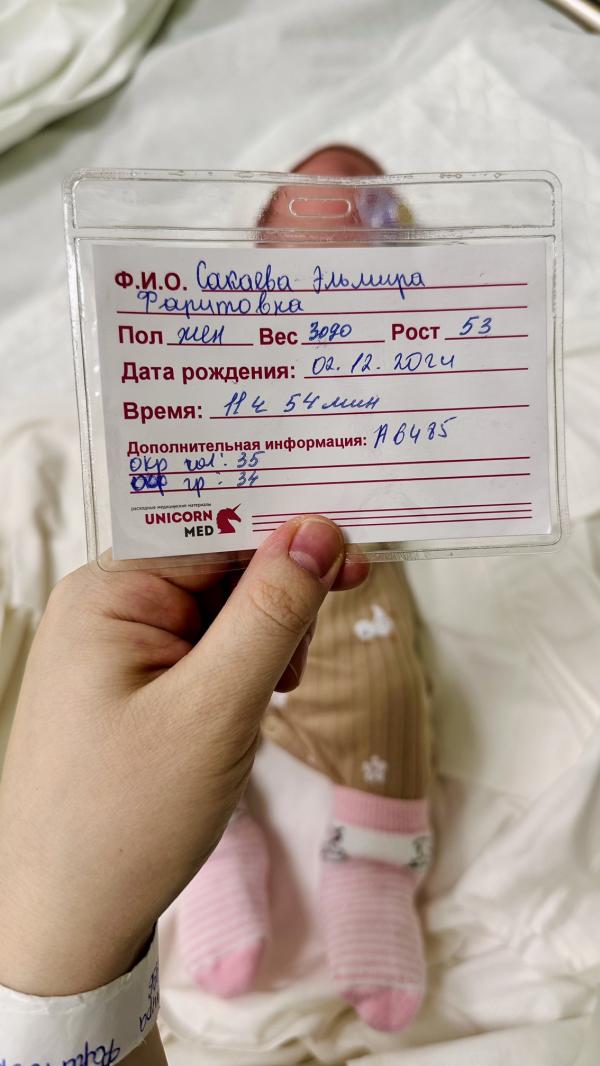 Ф.И.О. Сакаева Эльмира
Фаритовна
Пол жен Вес 3090 Рост 53
Дата рождения: 02.12.2024
Время: 11ч 54мин
Дополнительная информация: АВ485
окр гол: 35
окр гр: 34
расходные медицинские материалы
UNICORN
MED